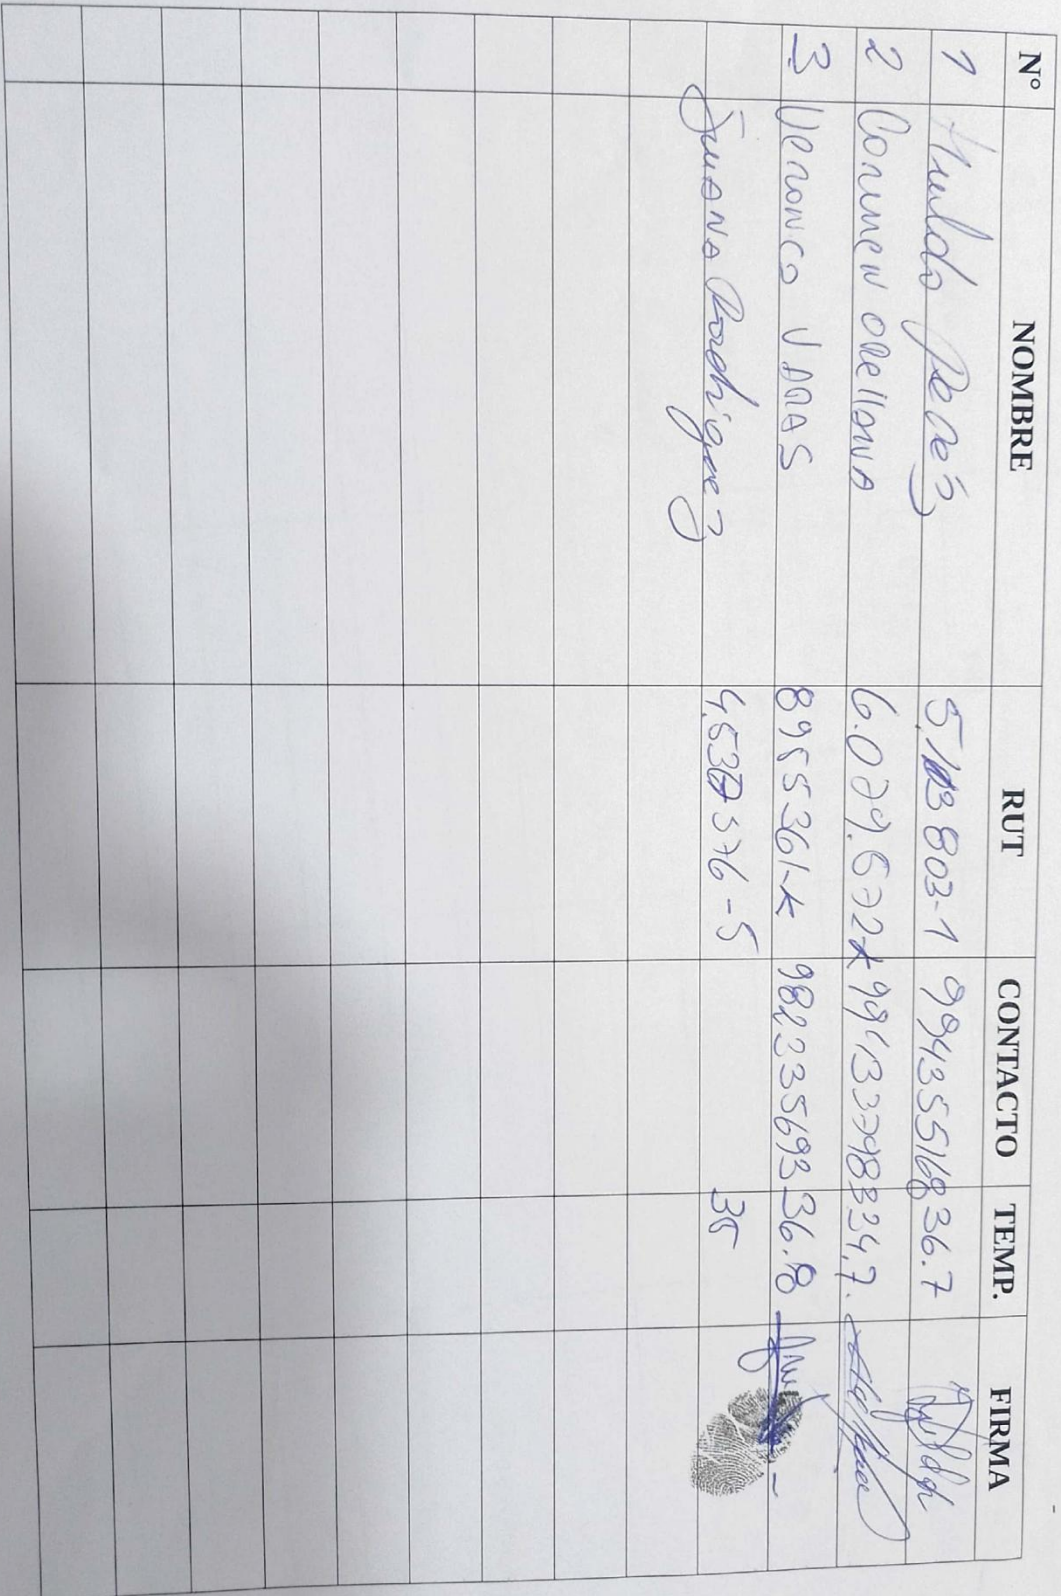 N° NOMBRE RUT CONTACTO TEMP. FIRMA
1 perez 803-1 994355168 36.7
2 Carmen Orellana 6.079.572-k 34,7.
3 Veronica VARAS 8955361-k 982335693 36.8
Juana Rodriguez 376-5 35